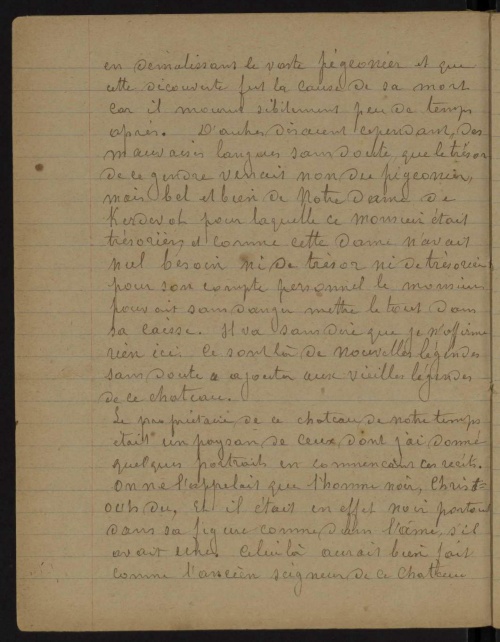 en demalissant le vaste pégeonier et que
cette découverte fut la cause de sa mort
car il mourut sibitement peu de temps
après. D'autres disaient cependant, des
mauvaises langues sans doute, que le trésor
de ce gendre venait non du pégeonier,
mais bel et bien de Notre Dame de
Kerdevot pour laquelle ce monsieur était
trésorier, et comme cette dame n'avait
nul besoin ni de trésor ni de trésorier
pour son compte personnel le monsieur
pouvait sans danger mettre le tout dans
sa caisse. Il va sans dire que je n'affirme
rien ici. Ce sont là de nouvelles légendes
sans doute a ajouter aux vieilles légendes
de ce chateau.
Le propriétaire de ce chateau de notre temps
était un paysan de ceux dont j'ai donné
quelques portraits en commencant ces récits.
On ne l'appelait que l'homme noir,
du, Et il était en effet noir partout
dans sa figure comme dans l'âme, s'il
avait une. Celui là aurait bien fait
comme l'ancien seigneur de ce chateau